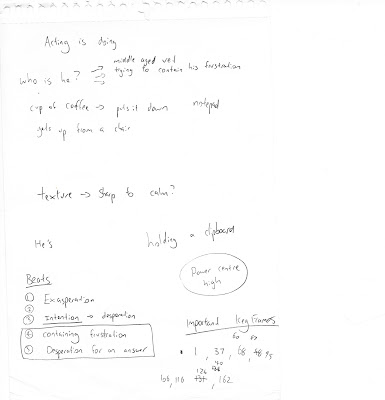 Acting is doing
who is he? → middle aged
trying to contain his frustration
cup of coffee → puts it down notepad
gets up from a chair
texture → snap to calm?
He's holding a clipboard
Power centre high
Beats
① Exasperation
②
③ Intention → desperation
④ containing frustration
⑤ Desperation for an answer
Important Key Frames
1, 37, 68, 95
162